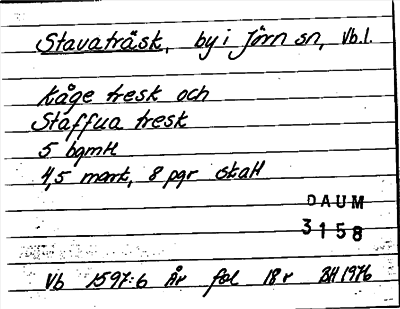 Stavaträsk, by i Jörn sn, Vb.l.
Kåge tresk och
Staffua tresk
5 bgmtl
4,5 mark, 8 pgr skatt
DAUM
3158
Vb 1597:6 År fol 18r BH 1976